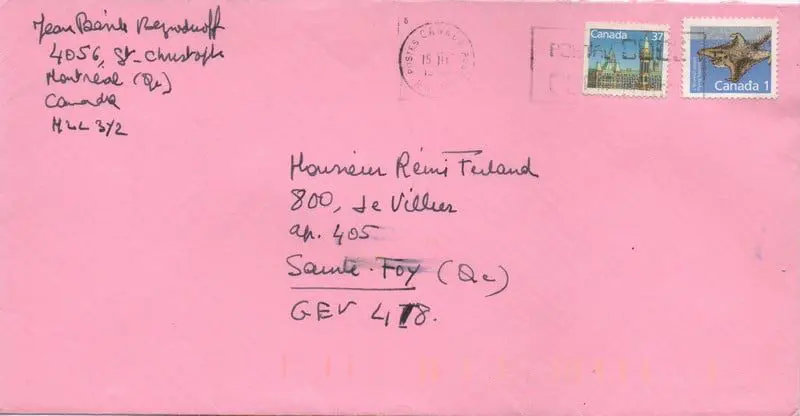 Jean Basile
4056, St-Christophe
Montréal (Qc)
Canada
H2L 3Y2
POSTES CANADA POST
15 III
POSTAL CODE
Canada 37
Canada 1
Monsieur Rémi Ferland
800, de Villers
ap. 405
Sainte-Foy (Qc)
GEV 4T8.